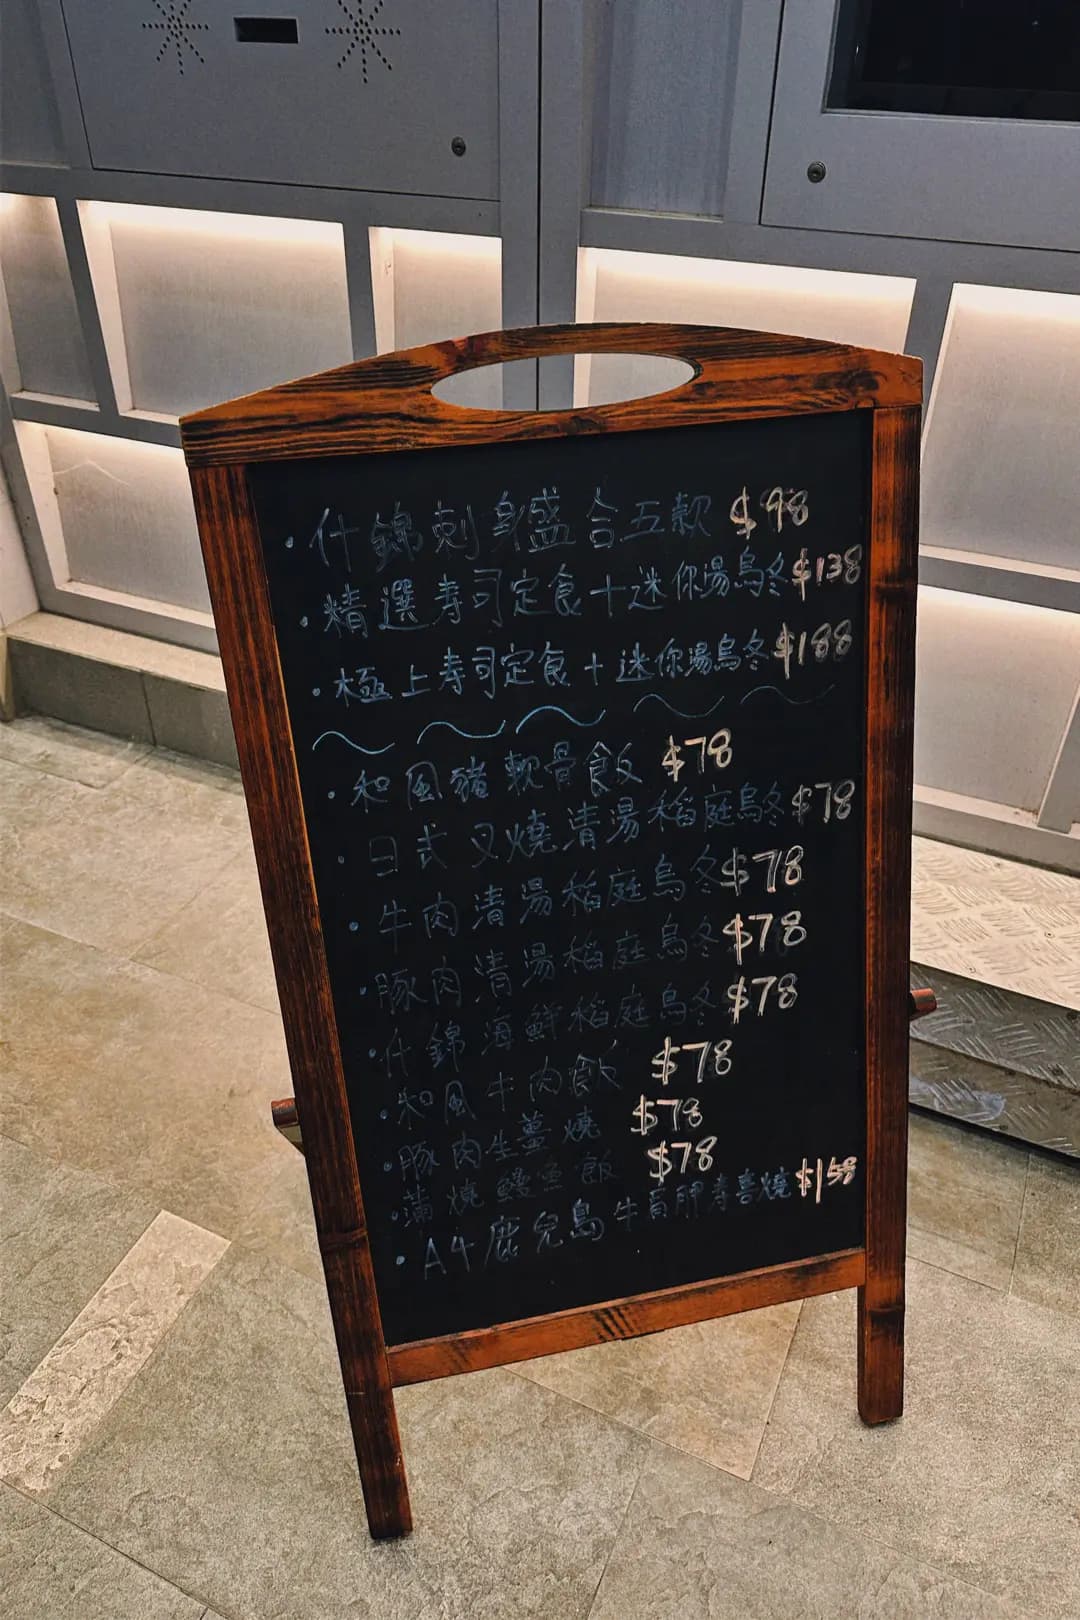 · 什錦刺身盛合五款 $98
· 精選寿司定食+迷你湯烏冬 $138
· 極上寿司定食+迷你湯烏冬 $188
· 和風豬軟骨飯 $78
· 日式叉燒清湯稻庭烏冬 $78
· 牛肉清湯稻庭烏冬 $78
· 豚肉清湯稻庭烏冬 $78
· 什錦海鮮稻庭烏冬 $78
· 和風牛肉飯 $78
· 豚肉生薑燒 $78
· 蒲燒鰻魚飯 $78
· A4鹿兒島牛肩胛寿喜燒 $158